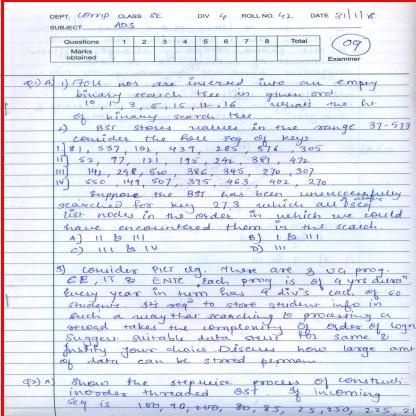 DEPT. Comp CLASS SE DIV 4 ROLL NO. 42 DATE 31/1/18
SUBJECT ADS
Questions 1 2 3 4 5 6 7 8 Total
Marks obtained
09
Examiner
Q1) A) 1) Foll. nos are inserted into an empty
binary search tree in given ord
10, 1, 3, 5, 15, 12, 16 what's the ht.
of binary search tree
2) BST stores values in the range 37-573
consider the foll seq of keys
I] 81, 537, 102, 439, 285, 376, 305
II] 52, 97, 121, 195, 242, 381, 472
III] 142, 248, 520, 386, 345, 270, 307
IV] 550, 149, 507, 395, 463, 402, 270
Suppose the BST has been unsuccessfully
searched for key 273 which all seq
list nodes in the order in which we could
have encountered them in the search.
A] II & III B] I & III
C] III & IV D] III
3) Consider PICT clg. There are 3 UG prog.
CE, IT & ENTC, Each prog is of 4 yrs duran
Every year in turn has 4 divis each of 60
students. Its reqd to store student info in
such a way that searching & processing a
record takes the complexity of order of logn
Suggest suitable data struc for same &
Justify your choice Discuss how large amt
of data can be stored perman
Q2) A) Show the stepwise process of construct
inorder threaded BST if incoming
seq is 100, 90, 200, 80, 85, 25, 250, 225,